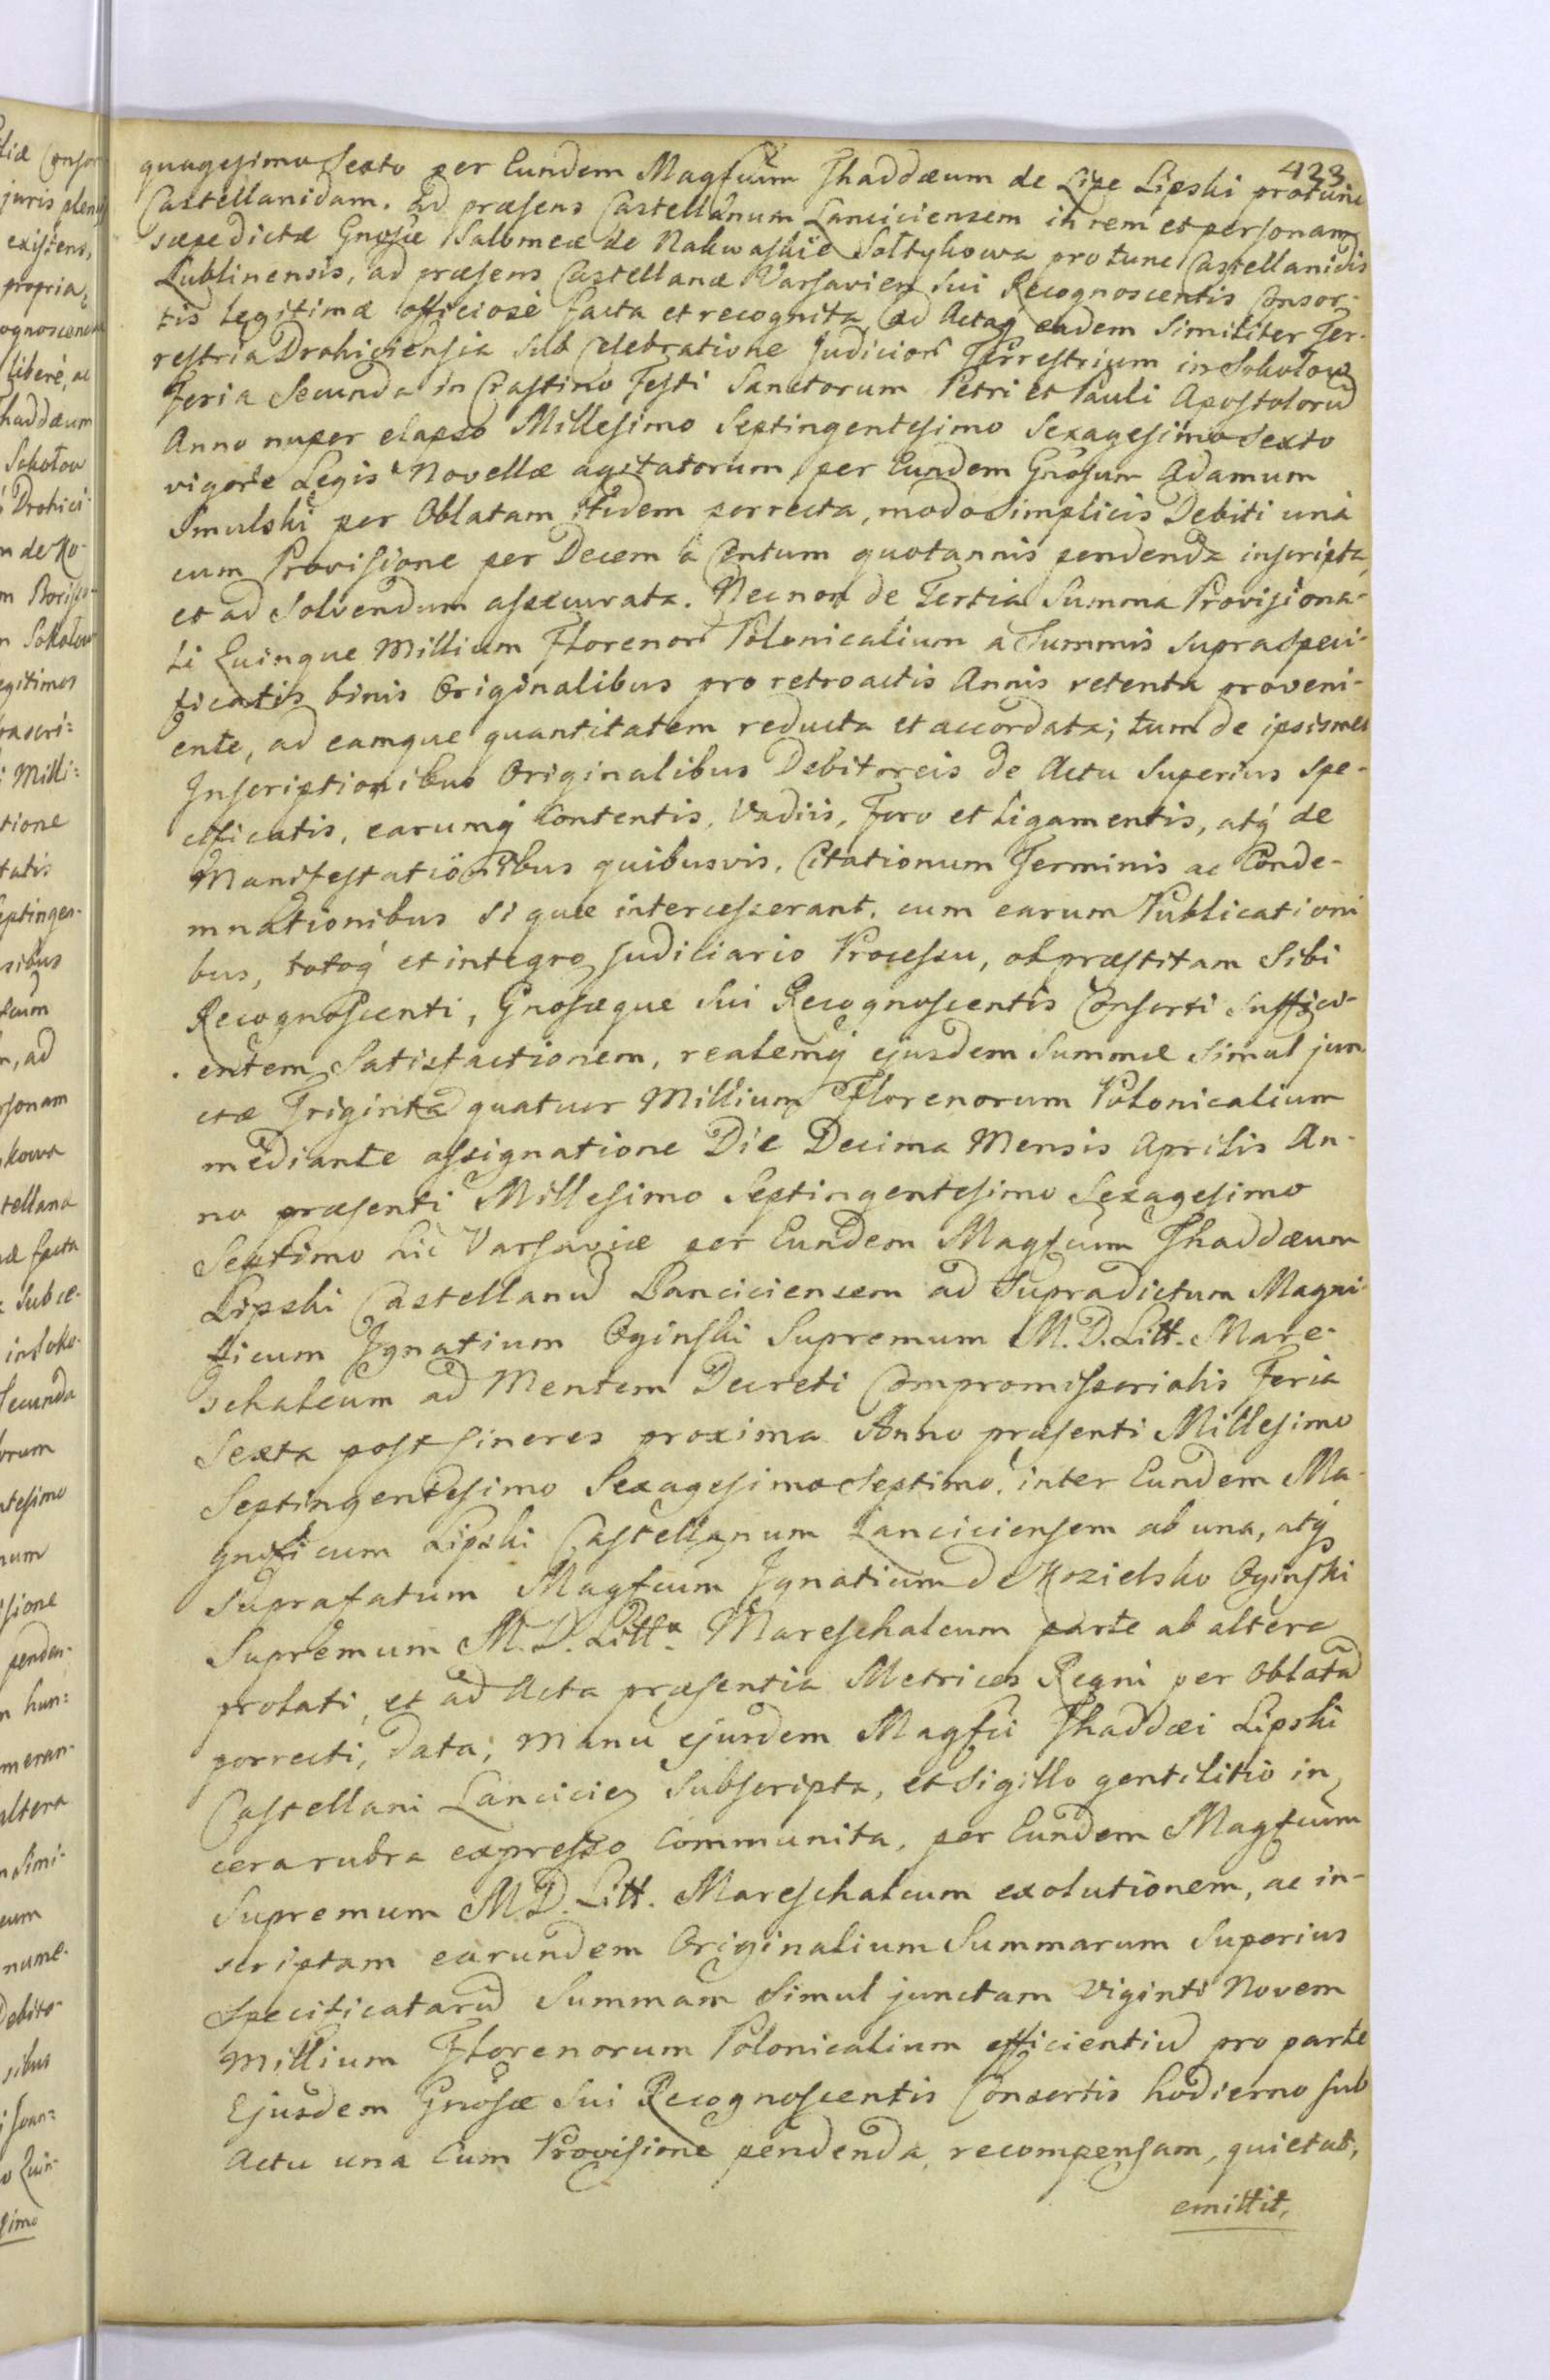 423
quagesimo Sexto per Eundem Magfcum Thaddæum de Lipe Lipski protunc
Castellanidam. ad præsens Castellanum Lanciciensem in rem et personam
sæpedictæ Gnosæ Salomeæ de Nakwaskie Sołtykowa protunc Castellanidis
Lublinensis, ad præsens Castellanæ Varsavien Sui Recognoscentis Consor-
tis Legitimæ officiosè facta et recognita, ad Actaq eadem Similiter Ter-
restria Drohiciensia Sub Celebratione Judicior Terrestrium in Sokołow
Feria Secunda in Crastino Festi Sanctorum Petri et Pauli Apostolorum
Anno nuper elapso Millesimo Septingentesimo Sexagesimo Sexto
vigore Legis Novellæ agitatorum per Eundem Gnosum Adamum
Smulski per Oblatam itidem porrecta, modo Simplicis Debiti unà
cum Provisione per Decem à Centum quotannis pendenda inscripta,
et ad Solvendum assecurata. Necnon de Tertia Summa Provisiona-
li Quinque Millium Florenor Polonicalium a Summis supraspeci-
ficatis binis Originalibus pro retroactis Annis retenta proveni-
ente, ad eamque quantitatem reducta et accordata; tum de ipsismet
Inscriptionibus Originalibus Debitoreis de Actu Superius spe-
cificatis, earumq Contentis, Vadiis, Foro et Ligamentis, atq de
Manifestationibus quibusvis, Citationum Terminis ac Conde-
mnationibus si quæ intercesserant, cum earum Publicationi
bus, totoq et integro Judiciario Processu, ob præstitam Sibi
Recognoscenti, Gnosæque Sui Recognoscentis Consorti Suffici-
entem Satisfactionem, realemq ejusdem Summæ Simul jun
ctæ Triginta quatuor Millium Florenorum Polonicalium
mediante assignatione Die Decima Mensis Aprilis An-
no præsenti Millesimo Septingentesimo Sexagesimo
Septimo hic Varsaviæ per Eundem Magfcum Thaddæum
Lipski Castellanum Lanciciensem ad Supradictum Magni-
ficum Ignatium Oginski Supremum M. D. Litt. Mare-
schalcum ad Mentem Decreti Compromissorialis Feria
Sexta post Cineres proxima Anno præsenti Millesimo
Septingentesimo Sexagesimo Septimo, inter Eundem Ma-
gnificum Lipski Castellanum Lanciciensem ab una, atq
Suprafatum Magfcum Ignatium de Kozielsko Oginski
Supremum M. D. Litt. Mareschalcum parte ab altera
prolati, et ad Acta præsentia Metrices Regni per Oblatam
porrecti, data, Manu ejusdem Magfci Thaddæi Lipski
Castellani Lancicien Subscripta, et Sigillo gentilitio in
cera rubra expresso Communita, per Eundem Magfcum
Supremum M. D. Litt. Mareschalcum exolutionem, ac in-
scriptam earundem Originalium Summarum Superius
Specificatarum Summam Simul junctam Viginti Novem
Millium Florenorum Polonicalium efficientium pro parte
Ejusdem Gnosæ Sui Recognoscentis Consortis hodierno sub
Actu una Cum Provisione pendenda, recompensam, quietat,
emittit,